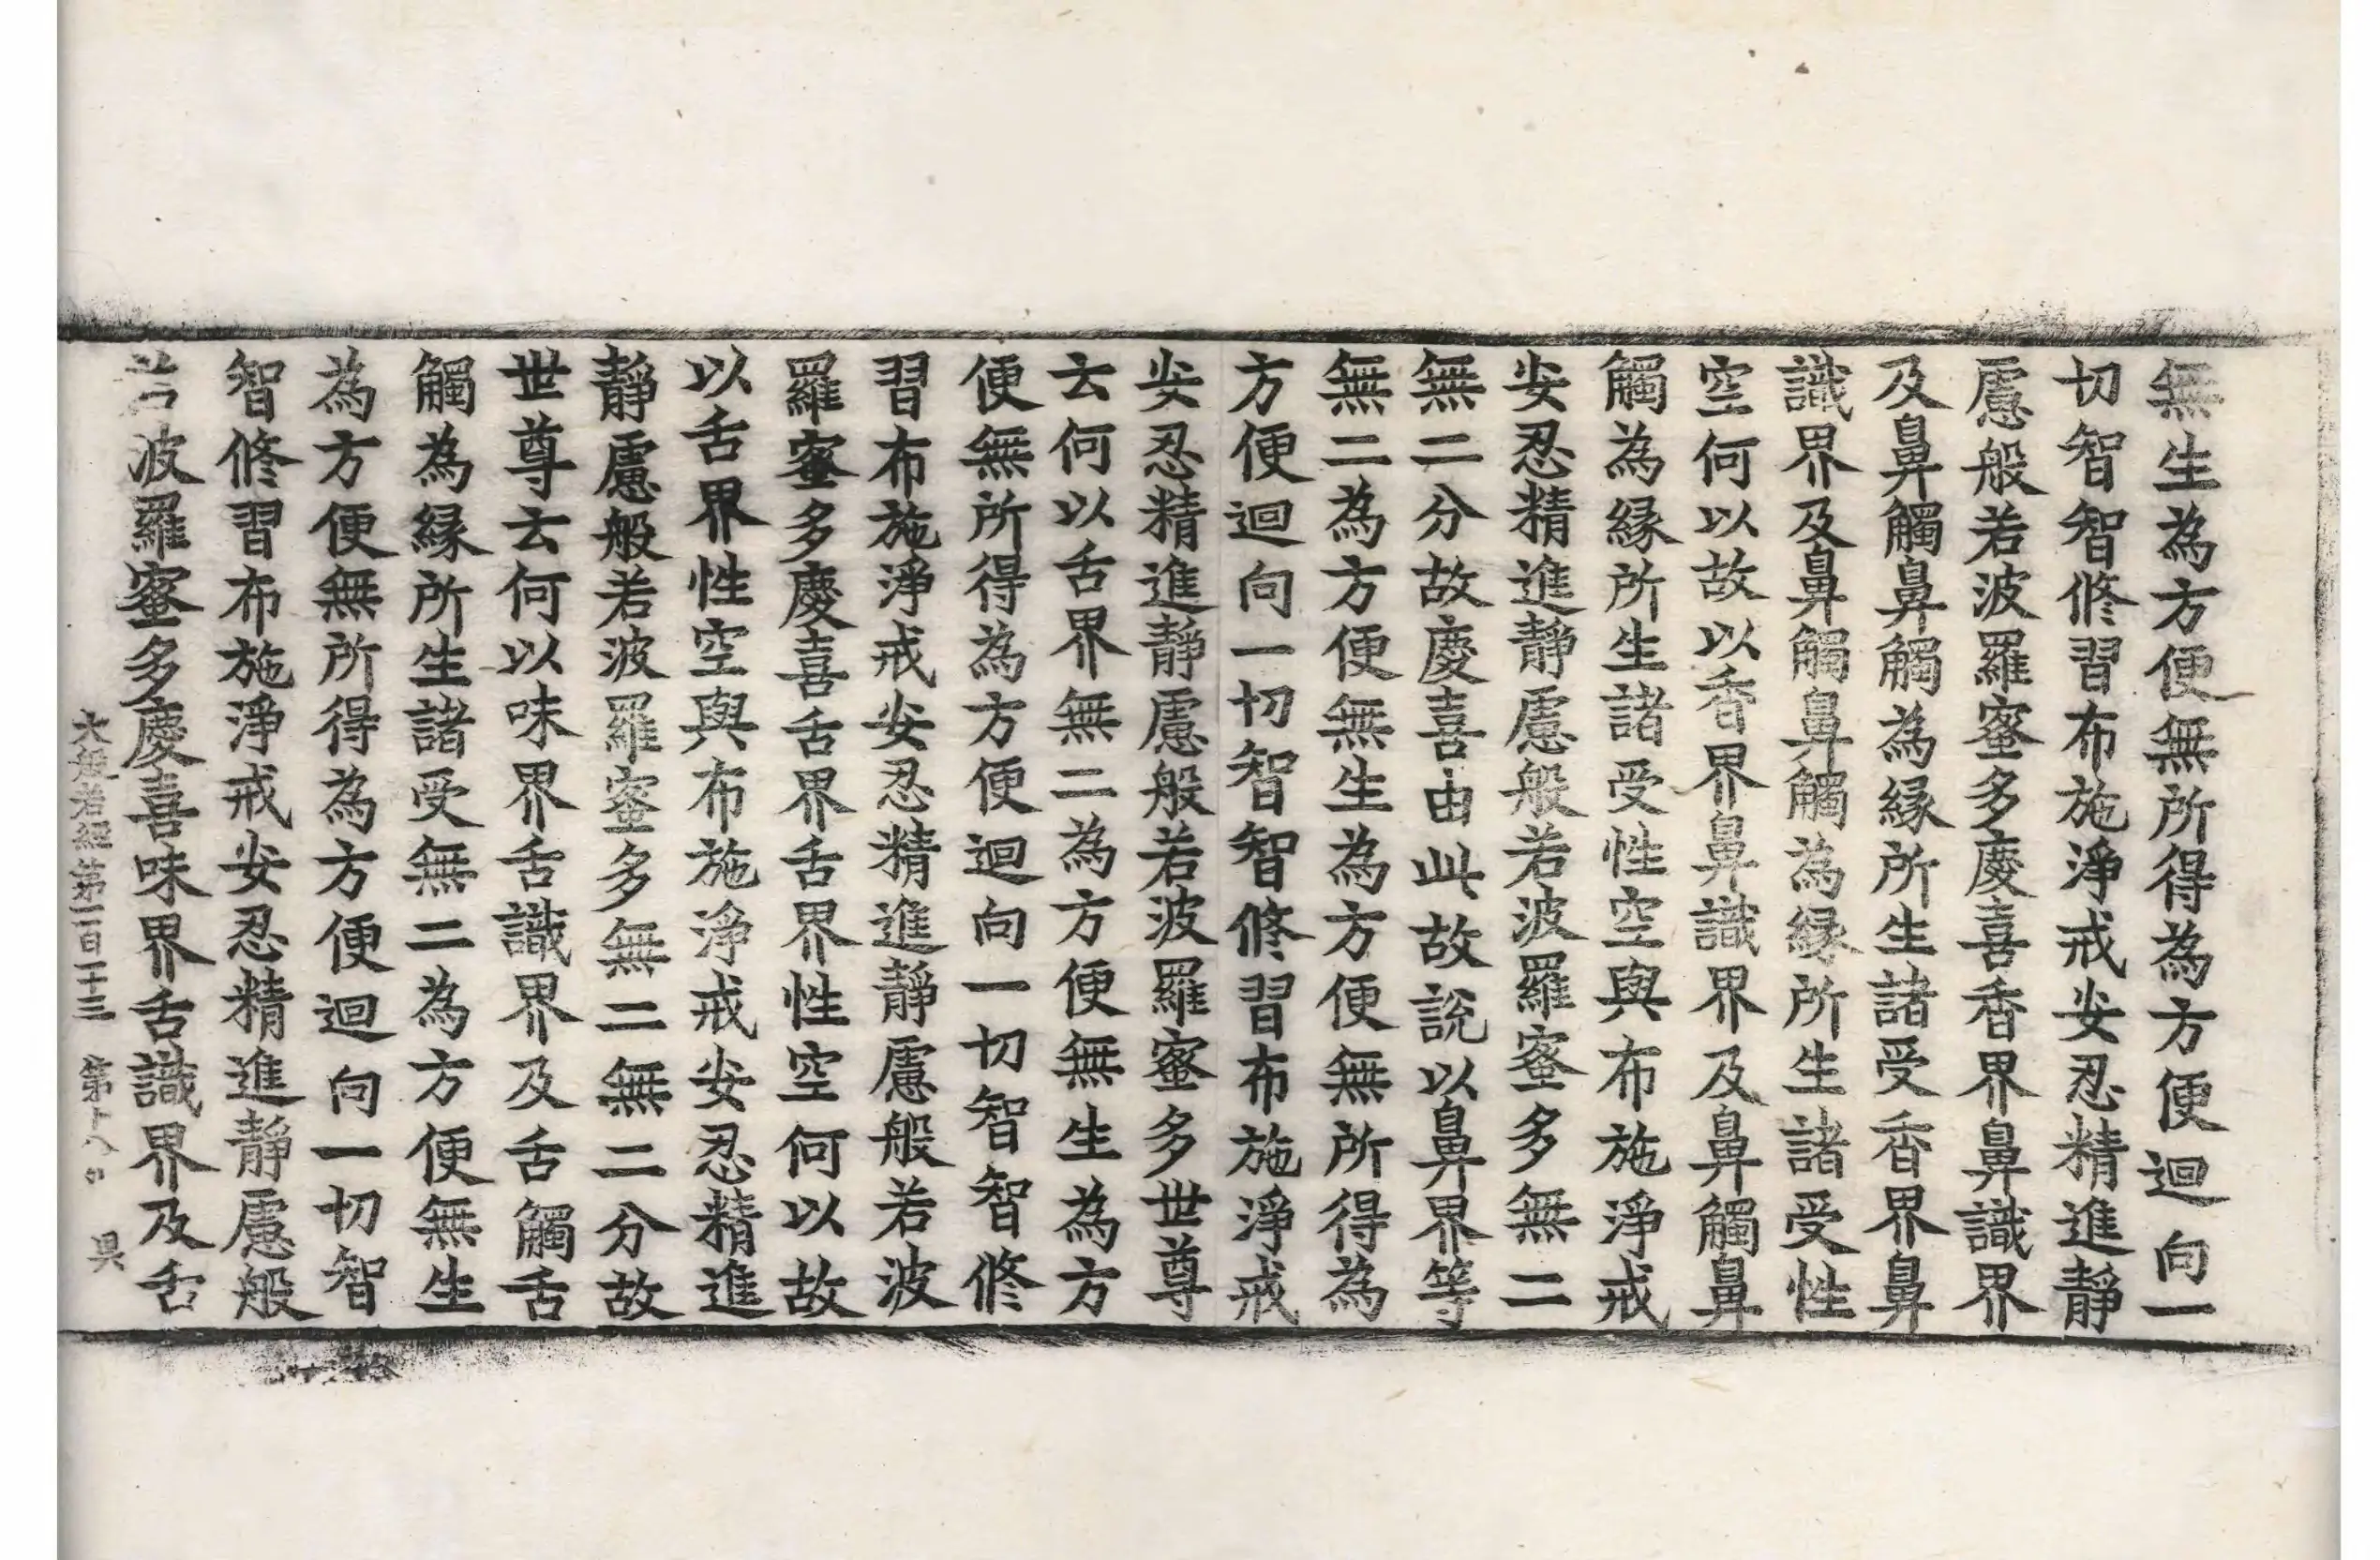 無生為方便無所得為方便迴向一
切智智修習布施淨戒安忍精進靜
慮般若波羅蜜多慶喜香界鼻識界
及鼻觸鼻觸為緣所生諸受香界鼻
識界及鼻觸鼻觸為緣所生諸受性
空何以故以香界鼻識界及鼻觸鼻
觸為緣所生諸受性空與布施淨戒
安忍精進靜慮般若波羅蜜多無二
無二分故慶喜由此故說以鼻界等
無二為方便無生為方便無所得為
方便迴向一切智智修習布施淨戒
安忍精進靜慮般若波羅蜜多世尊
云何以舌界無二為方便無生為方
便無所得為方便迴向一切智智修
習布施淨戒安忍精進靜慮般若波
羅蜜多慶喜舌界舌界性空何以故
以舌界性空與布施淨戒安忍精進
靜慮般若波羅蜜多無二無二分故
世尊云何以味界舌識界及舌觸舌
觸為緣所生諸受無二為方便無生
為方便無所得為方便迴向一切智
智修習布施淨戒安忍精進靜慮般
若波羅蜜多慶喜味界舌識界及舌
大般若經第一百一十三 第十八 昃